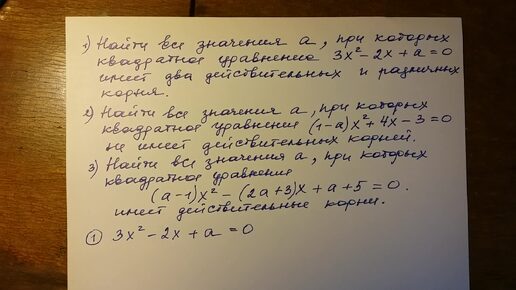 1) Найти все значения a, при которых
квадратное уравнение 3x² - 2x + a = 0
имеет два действительных и различных
корня.
2) Найти все значения a, при которых
квадратное уравнение (1-a)x² + 4x - 3 = 0
не имеет действительных корней.
3) Найти все значения a, при которых
квадратное уравнение
(a-1)x² - (2a+3)x + a + 5 = 0.
имеет действительные корни.
① 3x² - 2x + a = 0